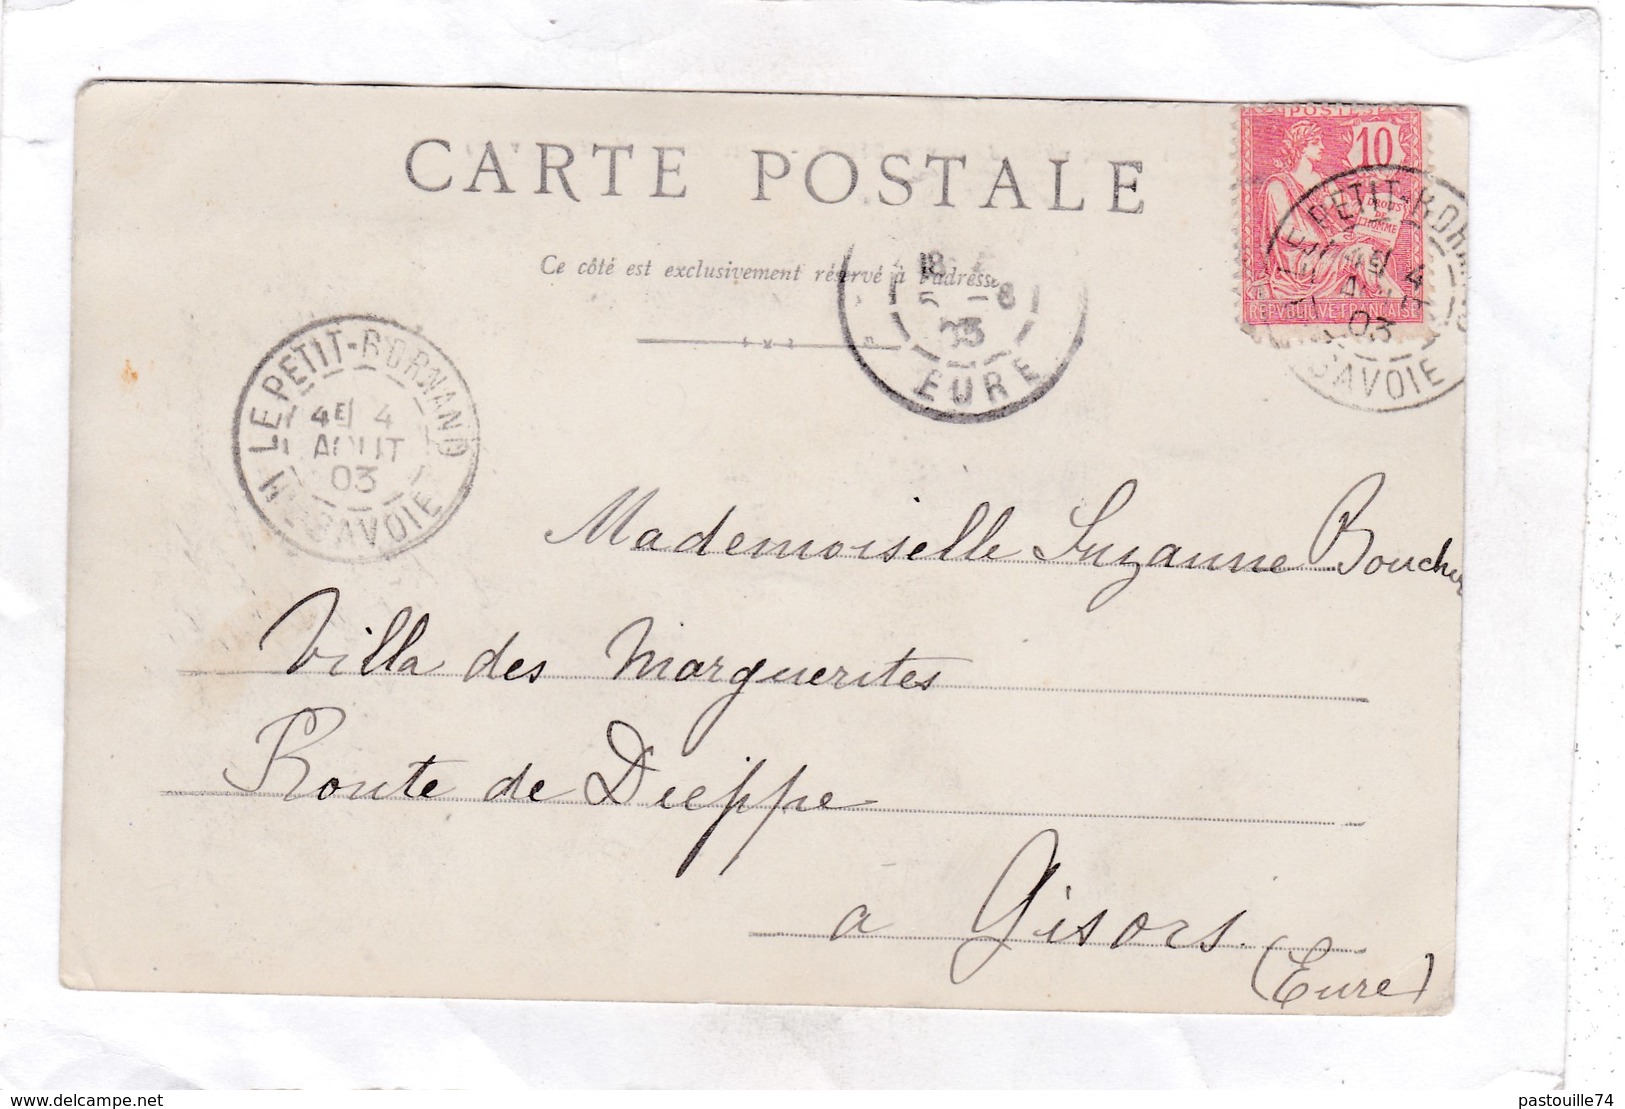 CARTE POSTALE
Ce côté est exclusivement réservé à l'adresse
POSTES
10
DROITS
DE
L'HOMME
REPVBLIQVE FRANÇAISE
LE PETIT-BORNAND
4E 4
AOUT
03
SAVOIE
18
5 -8
03
EURE
LE PETIT-BORNAND
4E 4
AOUT
03
Hte SAVOIE
Mademoiselle Suzanne Boucher
Villa des Marguerites
Route de Dieppe
à Gisors.
(Eure)
www.delcampe.net
pastouille74